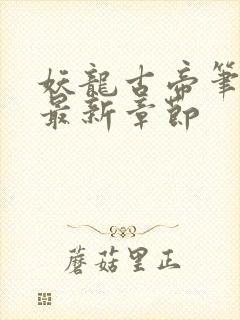 妖龍古帝筆
最新章節
蘑菇里正